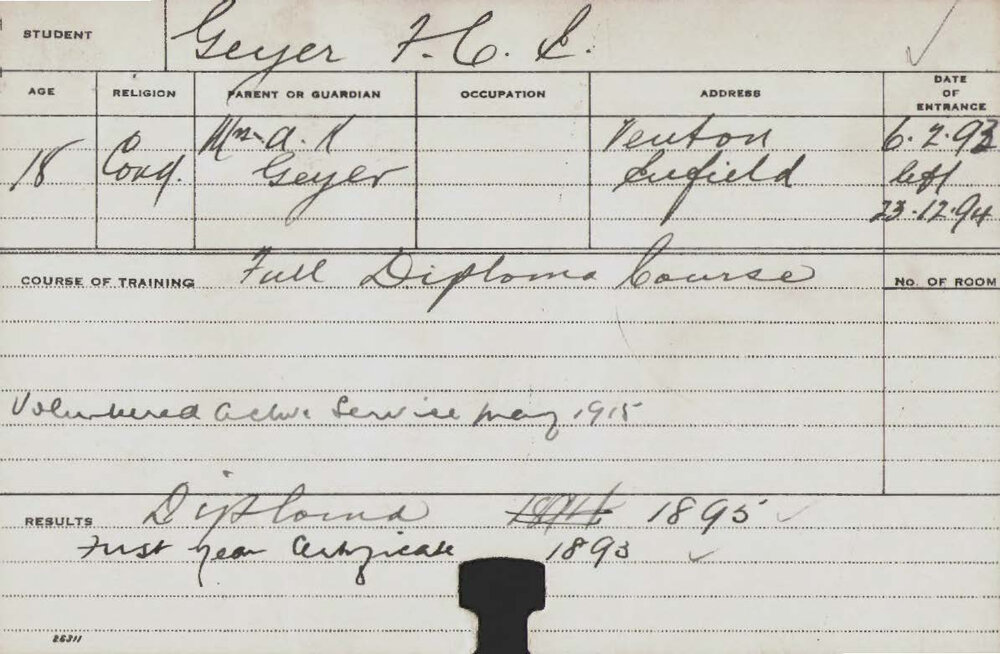 STUDENT Geyer F. C. E.
AGE RELIGION PARENT OR GUARDIAN OCCUPATION ADDRESS DATE OF ENTRANCE
Mr. A. K Venton 6.2.93
18 Cong. Geyer Enfield left
23.12.94
COURSE OF TRAINING Full Diploma Course No. OF ROOM
Volunteered active Service May 1915
RESULTS Diploma 1894 1895
First year Certificate 1893
26311